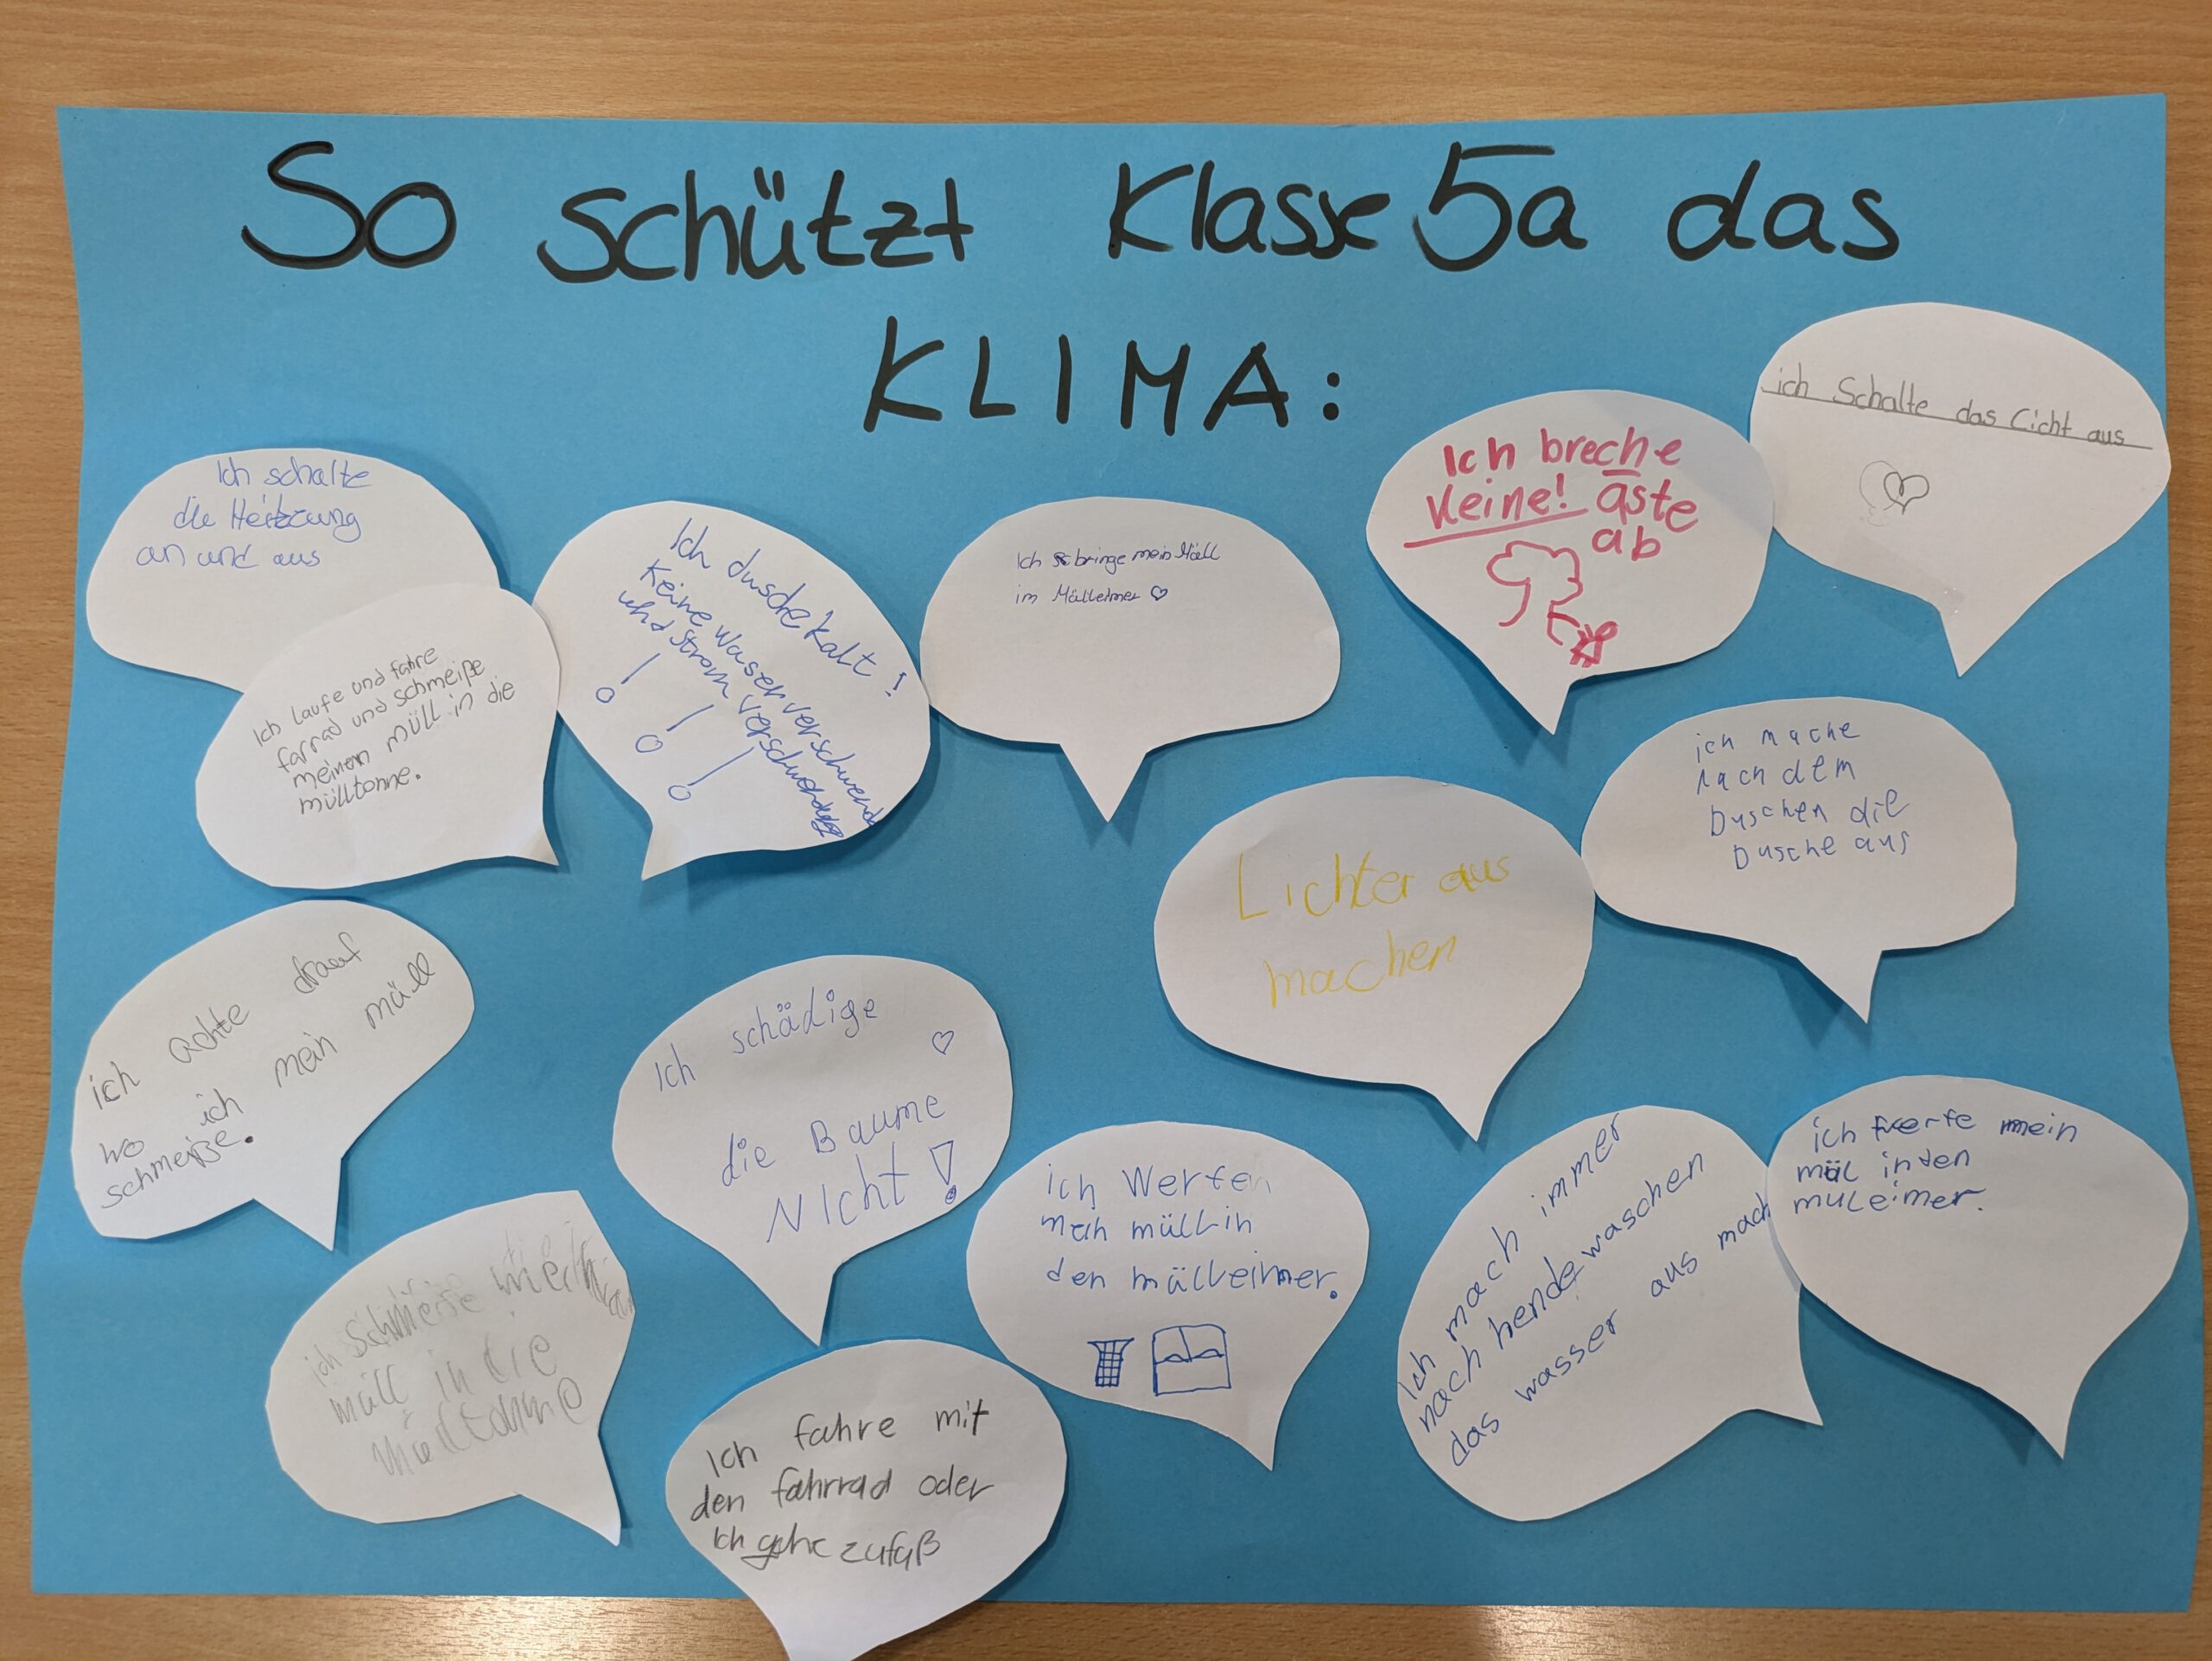 So schützt Klasse 5a das
KLIMA:
Ich schalte
die Heitzung
an und aus
Ich laufe und fahre
farrad und schmeiße
meinen müll in die
mülltonne.
Ich dusche kalt!
Keine Waser verschwend
und Strom verschwendung
Ich bringe mein Müll
im Mülleimer ♡
Ich breche
Keine! äste
ab
ich Schalte das Licht aus
ich mache
nach dem
Duschen die
Dusche aus
Lichter aus
machen
ich achte drauf
wo ich mein müll
schmeiße.
Ich schädige
die Baume
NIcht!
ich Werfen
mein müll in
den mülleimer.
ich schmeiße
müll in die
Mülltonne
Ich fahre mit
den fahrrad oder
Ich gehe zufuß
Ich mach immer
nach hende waschen
das wasser aus mach
ich werfe mein
mül in den
muleimer.